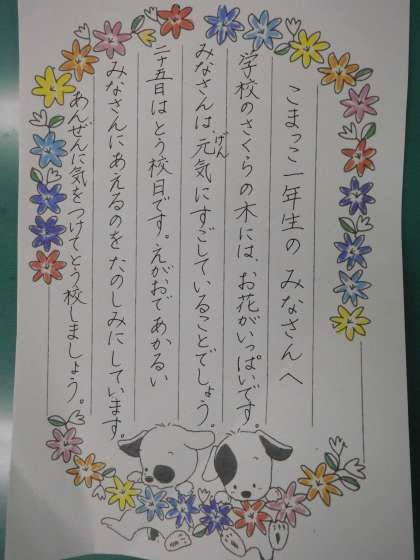 こまっこ一年生の みなさんへ
学校のさくらの木には、お花がいっぱいです。
みなさんは、元気にすごしていることでしょう。
げん
二十五日はとう校日です。えがおであかるい
みなさんにあえるのをたのしみにしています。
あんぜんに気をつけてとう校しましょう。